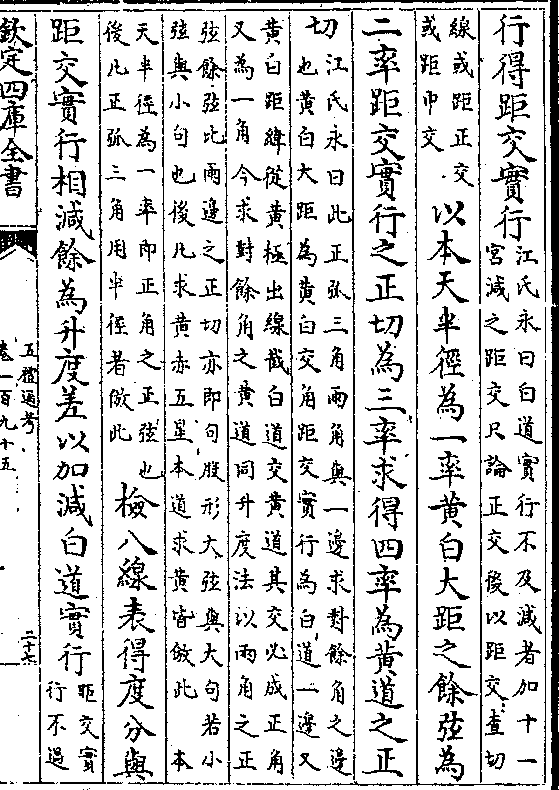 行得距交實行江氏永曰白道實行不及減者加十一
宮減之距交只論正交後以距交查切
線或距正交
或距中交以本天半徑為一率黃白大距之餘弦為
二率距交實行之正切為三率求得四率為黃道之正
切江氏永曰此正弧三角兩角與一邊求對餘角之邊
也黃白大距為黃白交角距交實行為白道一邊又
黃白距緯從黃極出線截白道交黃道其交必成正角
又為一角今求對餘角之黃道同升度法以兩角之正
弦餘弦比兩邊之正切亦即句股形大弦與大句若小
弦與小句也後凡求黃赤五星本道求黃皆倣此 本
天半徑為一率即正角之正弦也
後凡正弧三角用半徑者倣此檢八線表得度分與
距交實行相減餘為升度差以加減白道實行距交實
行不過
欽定四庫全書
五禮通考
卷一百九十五
二十六